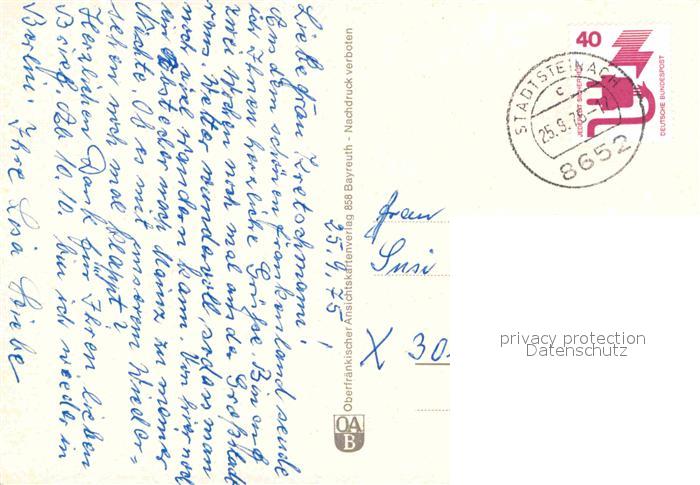 25.9.75
Liebe Frau Kretschmann!
Aus dem schönen Frankenland sende
ich Ihnen herzliche Grüße. Bin auf
zwei Wochen noch mal aus der Großstadt
raus. Wetter wundervoll, sodass man
noch viel wandern kann. Von hier noch
ein Abstecher nach Mainz zu meiner
Nichte. Ob es mit unserem Wieder=
sehen noch mal klappt?
Herzlichen Dank für Ihren lieben
Brief. Ab 10.10. bin ich wieder in
Berlin. Ihre Lisa Liebe
Oberfränkischer Ansichtskartenverlag 858 Bayreuth - Nachdruck verboten
OA
B
40
JEDERZEIT SICHERHEIT
DEUTSCHE BUNDESPOST
STADTSTEINACH
c
25.9.75-17
8652
Frau
Susi
X 30
privacy protection
Datenschutz